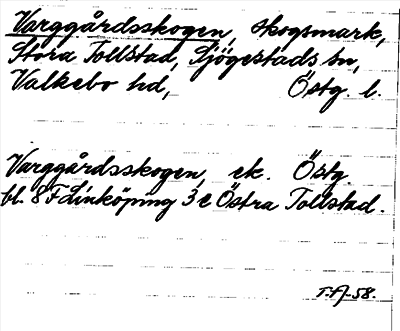 Varggårdsskogen, skogsmark,
Stora Tollstad, Sjögestads sn,
Valkebo hd, Östg. l.
Varggårdsskogen, ek. Östg.
bl. 8 F Linköping 3 e Östra Tollstad.
T.A-58.